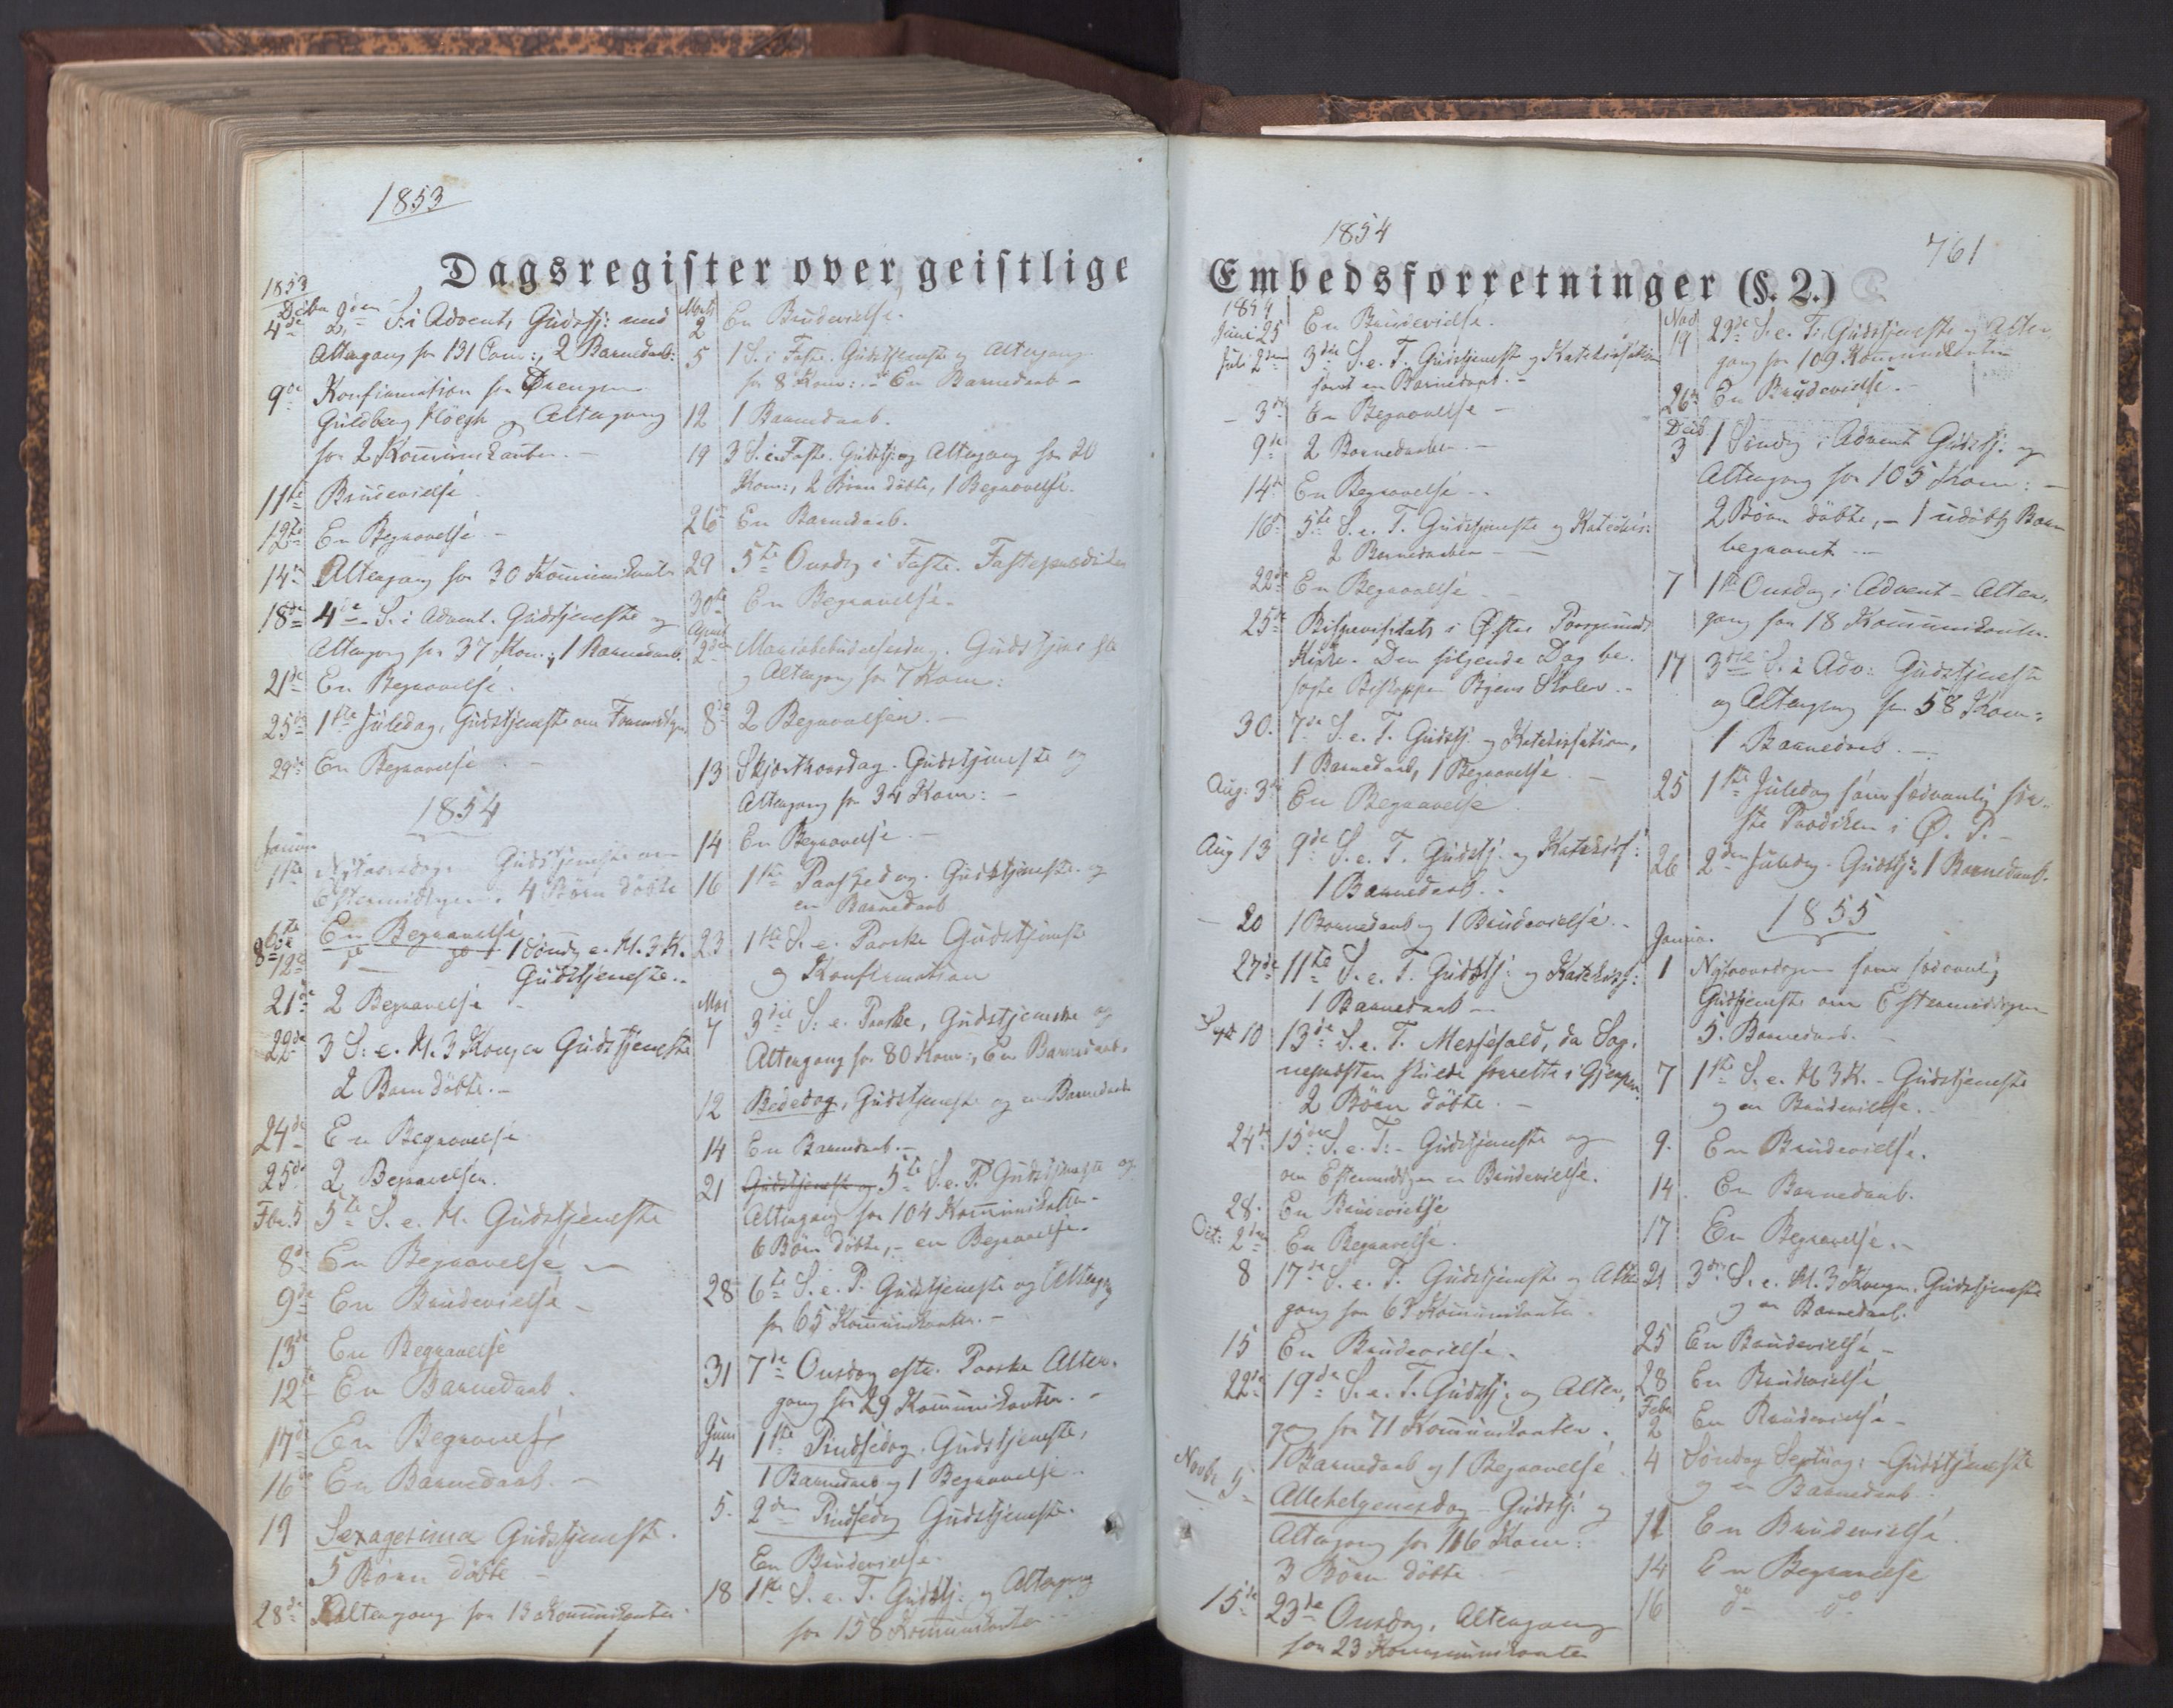 1853
Dagsregister over geistlige
1853
Decbr
4de 2den S. i Advent, Gudstj: med
Altergang for 131 Com:, 2 Barnedaab:
9de Konfirmation for Drengen
Guldberg Höegh og Altergang
for 2 Kommunikanter. -
11te Brudevielse
12te En Begravelse -
14de Altergang for 30 Kommunikanter
18de 4de S. i Advent. Gudstjeneste og
Altergang for 37 Kom:, 1 Barnedaab.
21de En Begravelse.
25de 1ste Juledag, Gudstjeneste om Formidagen
29de En Begravelse. -
1854
Januar
1ste Nytaarsdag. Gudstjeneste om
Eftermidagen. 4 Börn döbte
6te En Begravelse
8de 1 Söndg e. H. 3 K.
12te do do
Gudstjeneste..
21de 2 Begravelse -
22de 3 S: e. H. 3 Konger Gudstjeneste
2 Børn döbte. -
24de En Begravelse
25de 2 Begravelser.
Fbr. 5 5te S. e. H. Gudstjeneste
8de En Begravelse -
9de En Brudevielse -
13de En Begravelse
12te En Barnedaab.
17de En Begravelse
16de En Barnedaab. -
19 Sexagesima Gudstjeneste.
5 Børn döbte -
28de Altergang for 13 Kommunikanter.
Marts
2 En Brudevielse.
5 1 S. i Faste. Gudstjeneste og Altergang
for 8 Kom: - En Barnedaab -
12 1 Barnedaab.
19 3 S. i Faste. Gudstj: og Altergang for 20
Kom:, 2 Börn döbte, 1 Begravelse.
26 En Barnedaab.
29 5te Onsdg i Faste. Fasteprædiken
30te En Begravelse.
April
2den Mariæbebudelsesdag. Gudstjeneste
og Altergang for 7 Kom:
8de 2 Begravelser. -
13 Skjærthorsdag. Gudstjeneste og
Altergang for 34 Kom: -
14 En Begravelse. -
16 1ste Paaskedag. Gudstjeneste og
en Barnedaab
23 1ste S. e. Paaske Gudstjeneste
og Konfirmation
Mai
7 3die S: e. Paaske, Gudstjeneste og
Altergang for 80 Kom:, En Barnedaab.
12 Bededag, Gudstjeneste og en Barnedaab
14 En Barnedaab. -
21 Gudstjeneste og 5te S. e. P. Gudstjeneste og
Altergang for 104 Kommunikanter.
6 Börn döbte, - en Begravelse.
28 6te S. e. P. Gudstjeneste og Alterg:
for 65 Kommunikanter. -
31 7de Onsdag efter Paaske Alter-
gang for 29 Kommunikanter. -
Juni
4 1ste Pindsedag. Gudstjeneste,
1 Barnedaab og 1 Begravelse.
5. 2den Pindsedg Gudstjeneste.
En Brudevielse.
18 1ste S. e. T. Gudstj. og Altergang
for 158 Kommunikanter.
1854
761
Embedsforretninger (§. 2.)
1854
Juni 25 En Brudevielse.
Juli 2den 3die S. e. T. Gudstjeneste og Katekisation
samt en Barnedaab. -
- 3die En Begravelse -
9de 2 Barnedaaber -
14de En Begravelse -
16de 5te S. e. T. Gudstjeneste og Katechis:
2 Barnedaaber -
22de En Begravelse -
25de Bispevisitats i Øster Porsgrunds
Kirke. Den følgende Dag be-
søgte Biskoppen Byens Skoler. -
30. 7de S. e. T. Gudstj. og Katekisation,
1 Barnedaab, 1 Begravelse. -
Aug: 3die En Begravelse.
Aug 13 9de S. e. T. Gudstj. og Katekis:
1 Barnedaab. -
- 20 1 Barnedaab og 1 Brudevielse. -
27de 11te S. e. T. Gudstj: og Katekis:
1 Barnedaab -
Sept 10 13de S. e. T. Messefald, da Sog-
nepræsten skulde forrette i Gjerpen
2 Börn döbte. -
24de 15de S. e. T. - Gudstjeneste og
om Eftermidagen en Brudevielse.
28. En Brudevielse
Oct: 2den En Begravelse.
8 17de S. e. T. Gudstjeneste og Alter-
gang for 67 Kommunikanter.
15 En Brudevielse.
22de 19de S. e. T. Gudstj. og Alter-
gang for 71 Kommunikanter.
1 Barnedaab og 1 Begravelse.
Novbr 5 Allehelgenesdag Gudstj: og
Altergang for 116 Kom:
3 Börn döbte -
15de 23de Onsdag. Altergang
for 23 Kommunikanter
Nov
19 23de S. e. T. Gudstjeneste og Alter-
gang for 109 Kommunikanter
26de En Brudevielse. -
Decb
3 1 Søndg i Advent Gudstj: og
Altergang for 105 Kom: -
2 Börn döbte, - 1 udöbt Barn
begravet -
7 1ste Onsdag i Advent - Alter-
gang for 18 Kommunikanter.
17 3die S. i Adv: Gudstjeneste
og Altergang for 58 Kom:
1 Barnedaab. -
25 1ste Juledag som sædvanlig før-
ste Prædiken i Ø. P. -
26 2den Juledag - Gudstj:, 1 Barnedaab.
1855
Januar
1 Nytaarsdagen som sædvanlig
Gudstjeneste om Eftermidagen
5. Barnedaab. -
7 1ste S. e. H 3 K. - Gudstjeneste
og en Brudevielse.
9. En Brudevielse.
14. En Barnedaab.
17 En Begravelse. -
21 3die S. e. H. 3 Konger. Gudstjeneste
og en Barnedaab.
25 En Brudevielse -
28 En Brudevielse
Febr
2 En Brudevielse -
4 Søndag Septuag: - Gudstjeneste
og en Barnedaab
11 En Brudevielse.
14 En Begravelse
16 do do